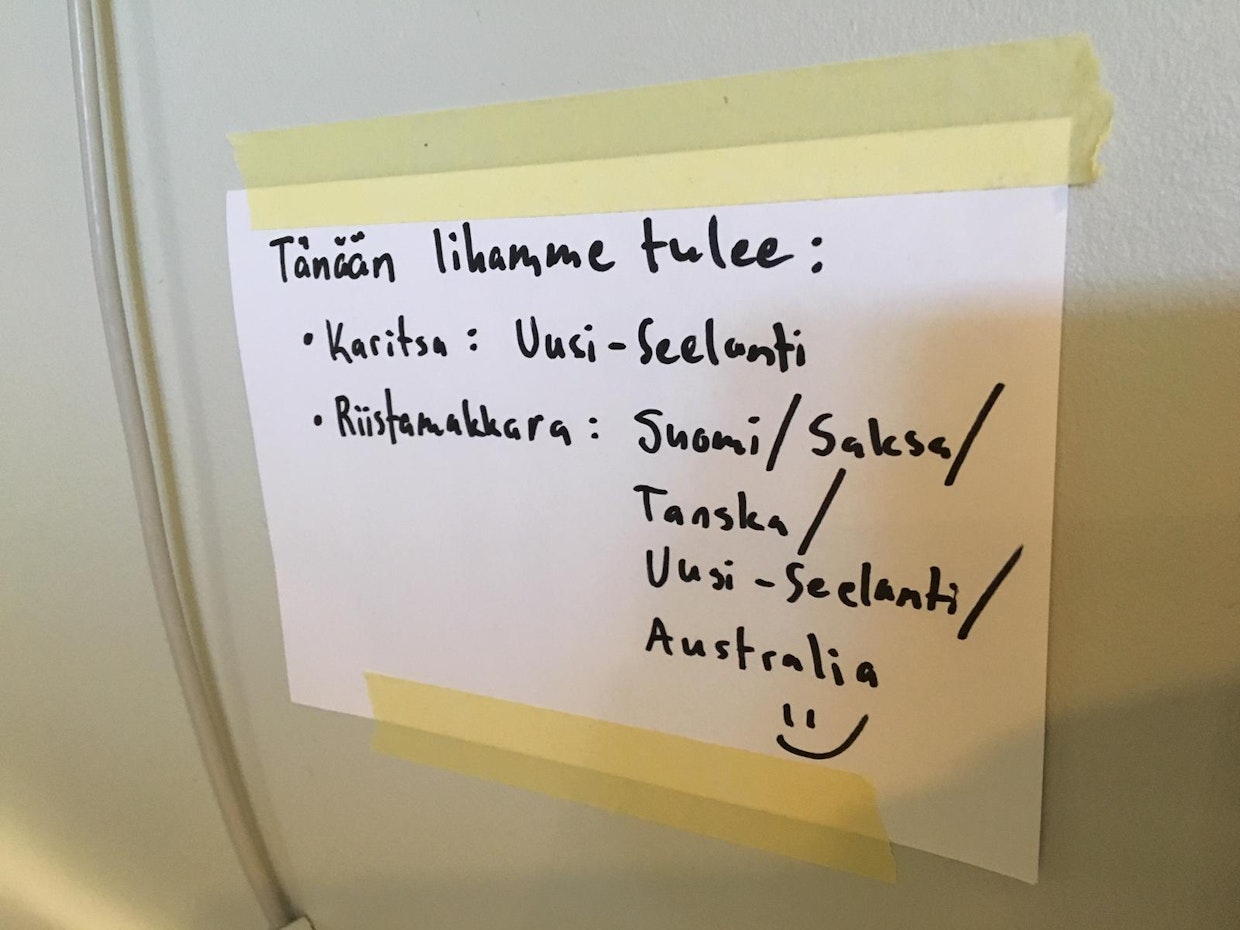 Tänään lihamme tulee:
• Karitsa: Uusi-Seelanti
• Riistamakkara: Suomi/Saksa/
Tanska/
Uusi-Seelanti/
Australia